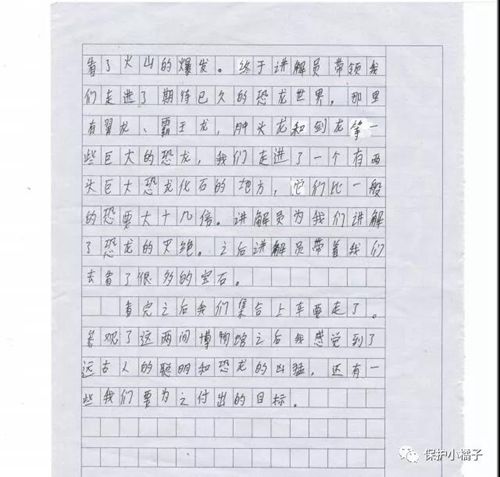 看了火山的爆发。终于讲解员带领我
们走进了期待已久的恐龙世界。那里
有翼龙、霸王龙,肿头龙和剑龙等一
些巨大的恐龙,我们走进了一个有两
头巨大恐龙化石的地方,它们比一般
的恐要大十几倍。讲解员为我们讲解
了恐龙的灭绝。之后讲解员带着我们
去看了很多的宝石。
看完之后我们集合上车要走了。
参观了这两间博物馆之后我感觉到了
远古人的聪明和恐龙的凶猛,还有一
些我们要为之付出的目标。
保护小橘子